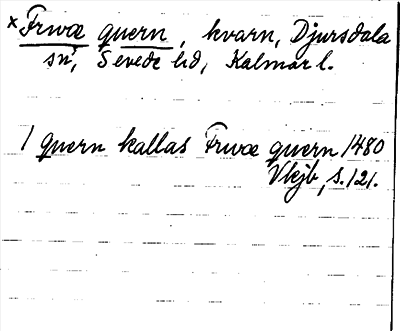 ×Frwæ quern, kvarn, Djursdala
sn, Sevede hd, Kalmar l.
1 quern kallas Frwæ quern 1480
Vkjb, s. 121.